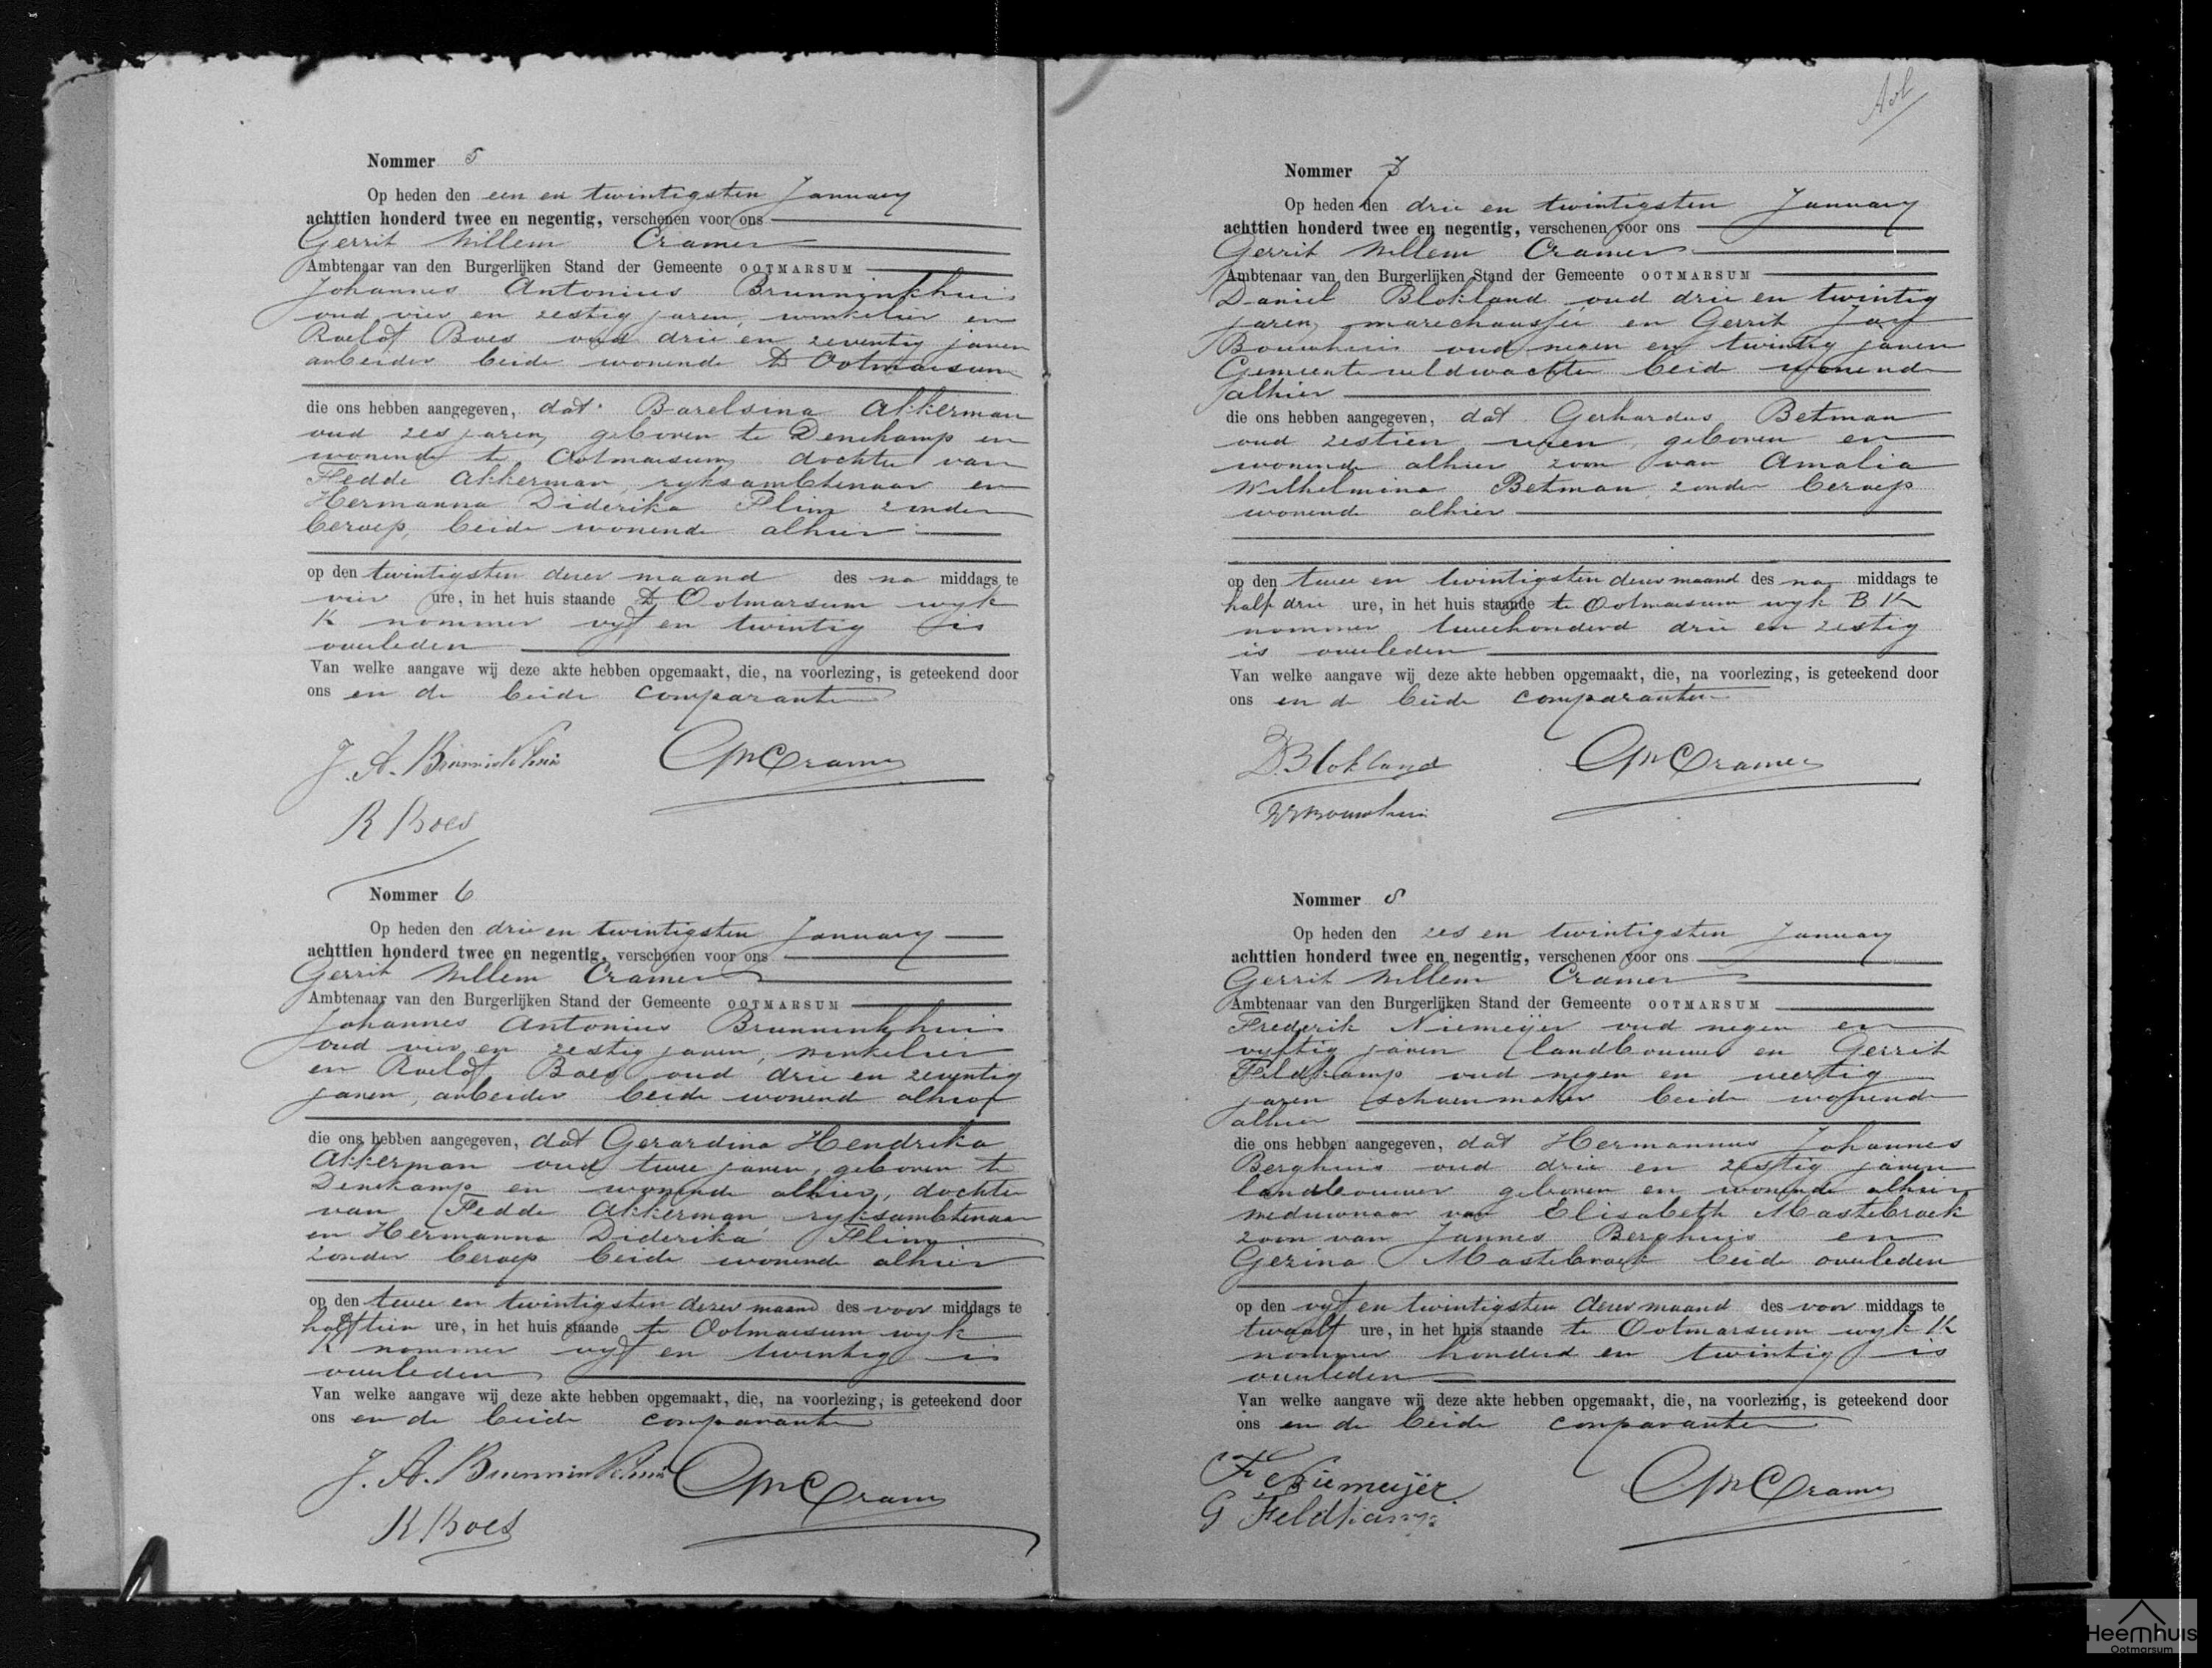 Nommer 5
Op heden den een en twintigsten January
achttien honderd twee en negentig, verschenen voor ons
Gerrit Willem Cramer
Ambtenaar van den Burgerlijken Stand der Gemeente OOTMARSUM
Johannes Antonius Brunninkhuis
oud vier en zestig jaren, winkelier en
Roelof Boes oud drie en zeventig jaren
arbeider beide wonende te Ootmarsum
die ons hebben aangegeven, dat Barelsina Akkerman
oud zes jaren, geboren te Denekamp en
wonende te Ootmarsum, dochter van
Fedde Akkerman, ryksambtenaar en
Hermanna Diderika Flim zonder
beroep, beide wonende alhier
op den twintigsten dezer maand des na middags te
vier ure, in het huis staande te Ootmarsum wyk
K nommer vyf en twintig is
overleden
Van welke aangave wij deze akte hebben opgemaakt, die, na voorlezing, is geteekend door
ons en de beide comparanten
J. A. Brunninkhuis GWCramer
R Boes
Nommer 6
Op heden den drie en twintigsten January
achttien honderd twee en negentig, verschenen voor ons
Gerrit Willem Cramer
Ambtenaar van den Burgerlijken Stand der Gemeente OOTMARSUM
Johannes Antonius Brunninkhuis
oud vier en zestig jaren, winkelier
en Roelof Boes oud drie en zeventig
jaren, arbeider beide wonende alhier
die ons hebben aangegeven, dat Gerardina Hendrika
Akkerman oud twee jaren, geboren te
Denekamp en wonende alhier, dochter
van Fedde Akkerman, ryksambtenaar
en Hermanna Diderika Flim
zonder beroep beide wonende alhier
op den twee en twintigsten dezer maand des voor middags te
half tien ure, in het huis staande te Ootmarsum wyk
K nommer vyf en twintig is
overleden
Van welke aangave wij deze akte hebben opgemaakt, die, na voorlezing, is geteekend door
ons en de beide comparanten
J. A. Brunninkhuis GWCramer
R Boes
Nommer 7
Op heden den drie en twintigsten January
achttien honderd twee en negentig, verschenen voor ons
Gerrit Willem Cramer
Ambtenaar van den Burgerlijken Stand der Gemeente OOTMARSUM
Daniel Blokland oud drie en twintig
jaren, marechaussée en Gerrit Jan
Bouwhuis oud negen en twintig jaren
Gemeenteveldwachter beide wonende
alhier
die ons hebben aangegeven, dat Gerhardus Betman
oud zestien uren, geboren en
wonende alhier zoon van Amalia
Wilhelmina Betman, zonder beroep
wonende alhier
op den twee en twintigsten dezer maand des na middags te
half drie ure, in het huis staande te Ootmarsum wyk B K
nommer tweehonderd drie en zestig
is overleden
Van welke aangave wij deze akte hebben opgemaakt, die, na voorlezing, is geteekend door
ons en de beide comparanten
D. Blokland GWCramer
Bouwhuis
Nommer 8
Op heden den zes en twintigsten January
achttien honderd twee en negentig, verschenen voor ons
Gerrit Willem Cramer
Ambtenaar van den Burgerlijken Stand der Gemeente OOTMARSUM
Frederik Niemeijer oud negen en
vyftig jaren landbouwer en Gerrit
Feldkamp oud negen en veertig
jaren schoenmaker beide wonende
alhier
die ons hebben aangegeven, dat Hermannus Johannes
Berghuis oud drie en zestig jaren
landbouwer geboren en wonende alhier
weduwnaar van Elisabeth Mastebroek
zoon van Jannes Berghuis en
Gezina Mastebroek beide overleden
op den vyf en twintigsten dezer maand des voor middags te
twaalf ure, in het huis staande te Ootmarsum wyk K
nommer honderd en twintig is
overleden
Van welke aangave wij deze akte hebben opgemaakt, die, na voorlezing, is geteekend door
ons en de beide comparanten
F Niemeijer GWCramer
G Feldkamp
Heemhuis
Ootmarsum